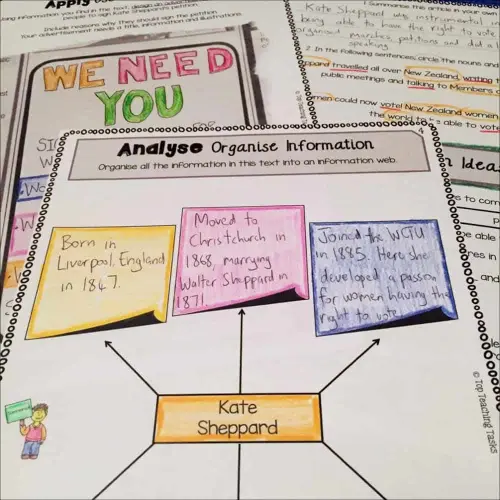 Apply
using information you find in the text, design an advert
people to sign Kate Sheppard's petition.
Include reasons why they should sign the petition.
Your advertisement needs a title, information and illustrations.
WE NEED
YOU
1 Summarise this article in your own
Kate Sheppard was instrumental
being able to have the right to vote.
organised marches, petitions and did a
speaking.
2. In the following sentences, circle the nouns and
travelled all over New Zealand, writing
public meetings and talking to Members o
men could now vote! New Zealand women
the world to be able to vote
4
Analyse Organise Information
Organise all the information in this text into an information web.
Born in
Liverpool, England
in 1847.
Moved to
Christchurch in
1868, marrying
Walter Sheppard in
1871
Joined the WCTU
in 1885. Here she
developed a passion
for women having the
right to vote
Kate
Sheppard
n Idea
s to com
able
res in
and
© Top Teaching Tasks